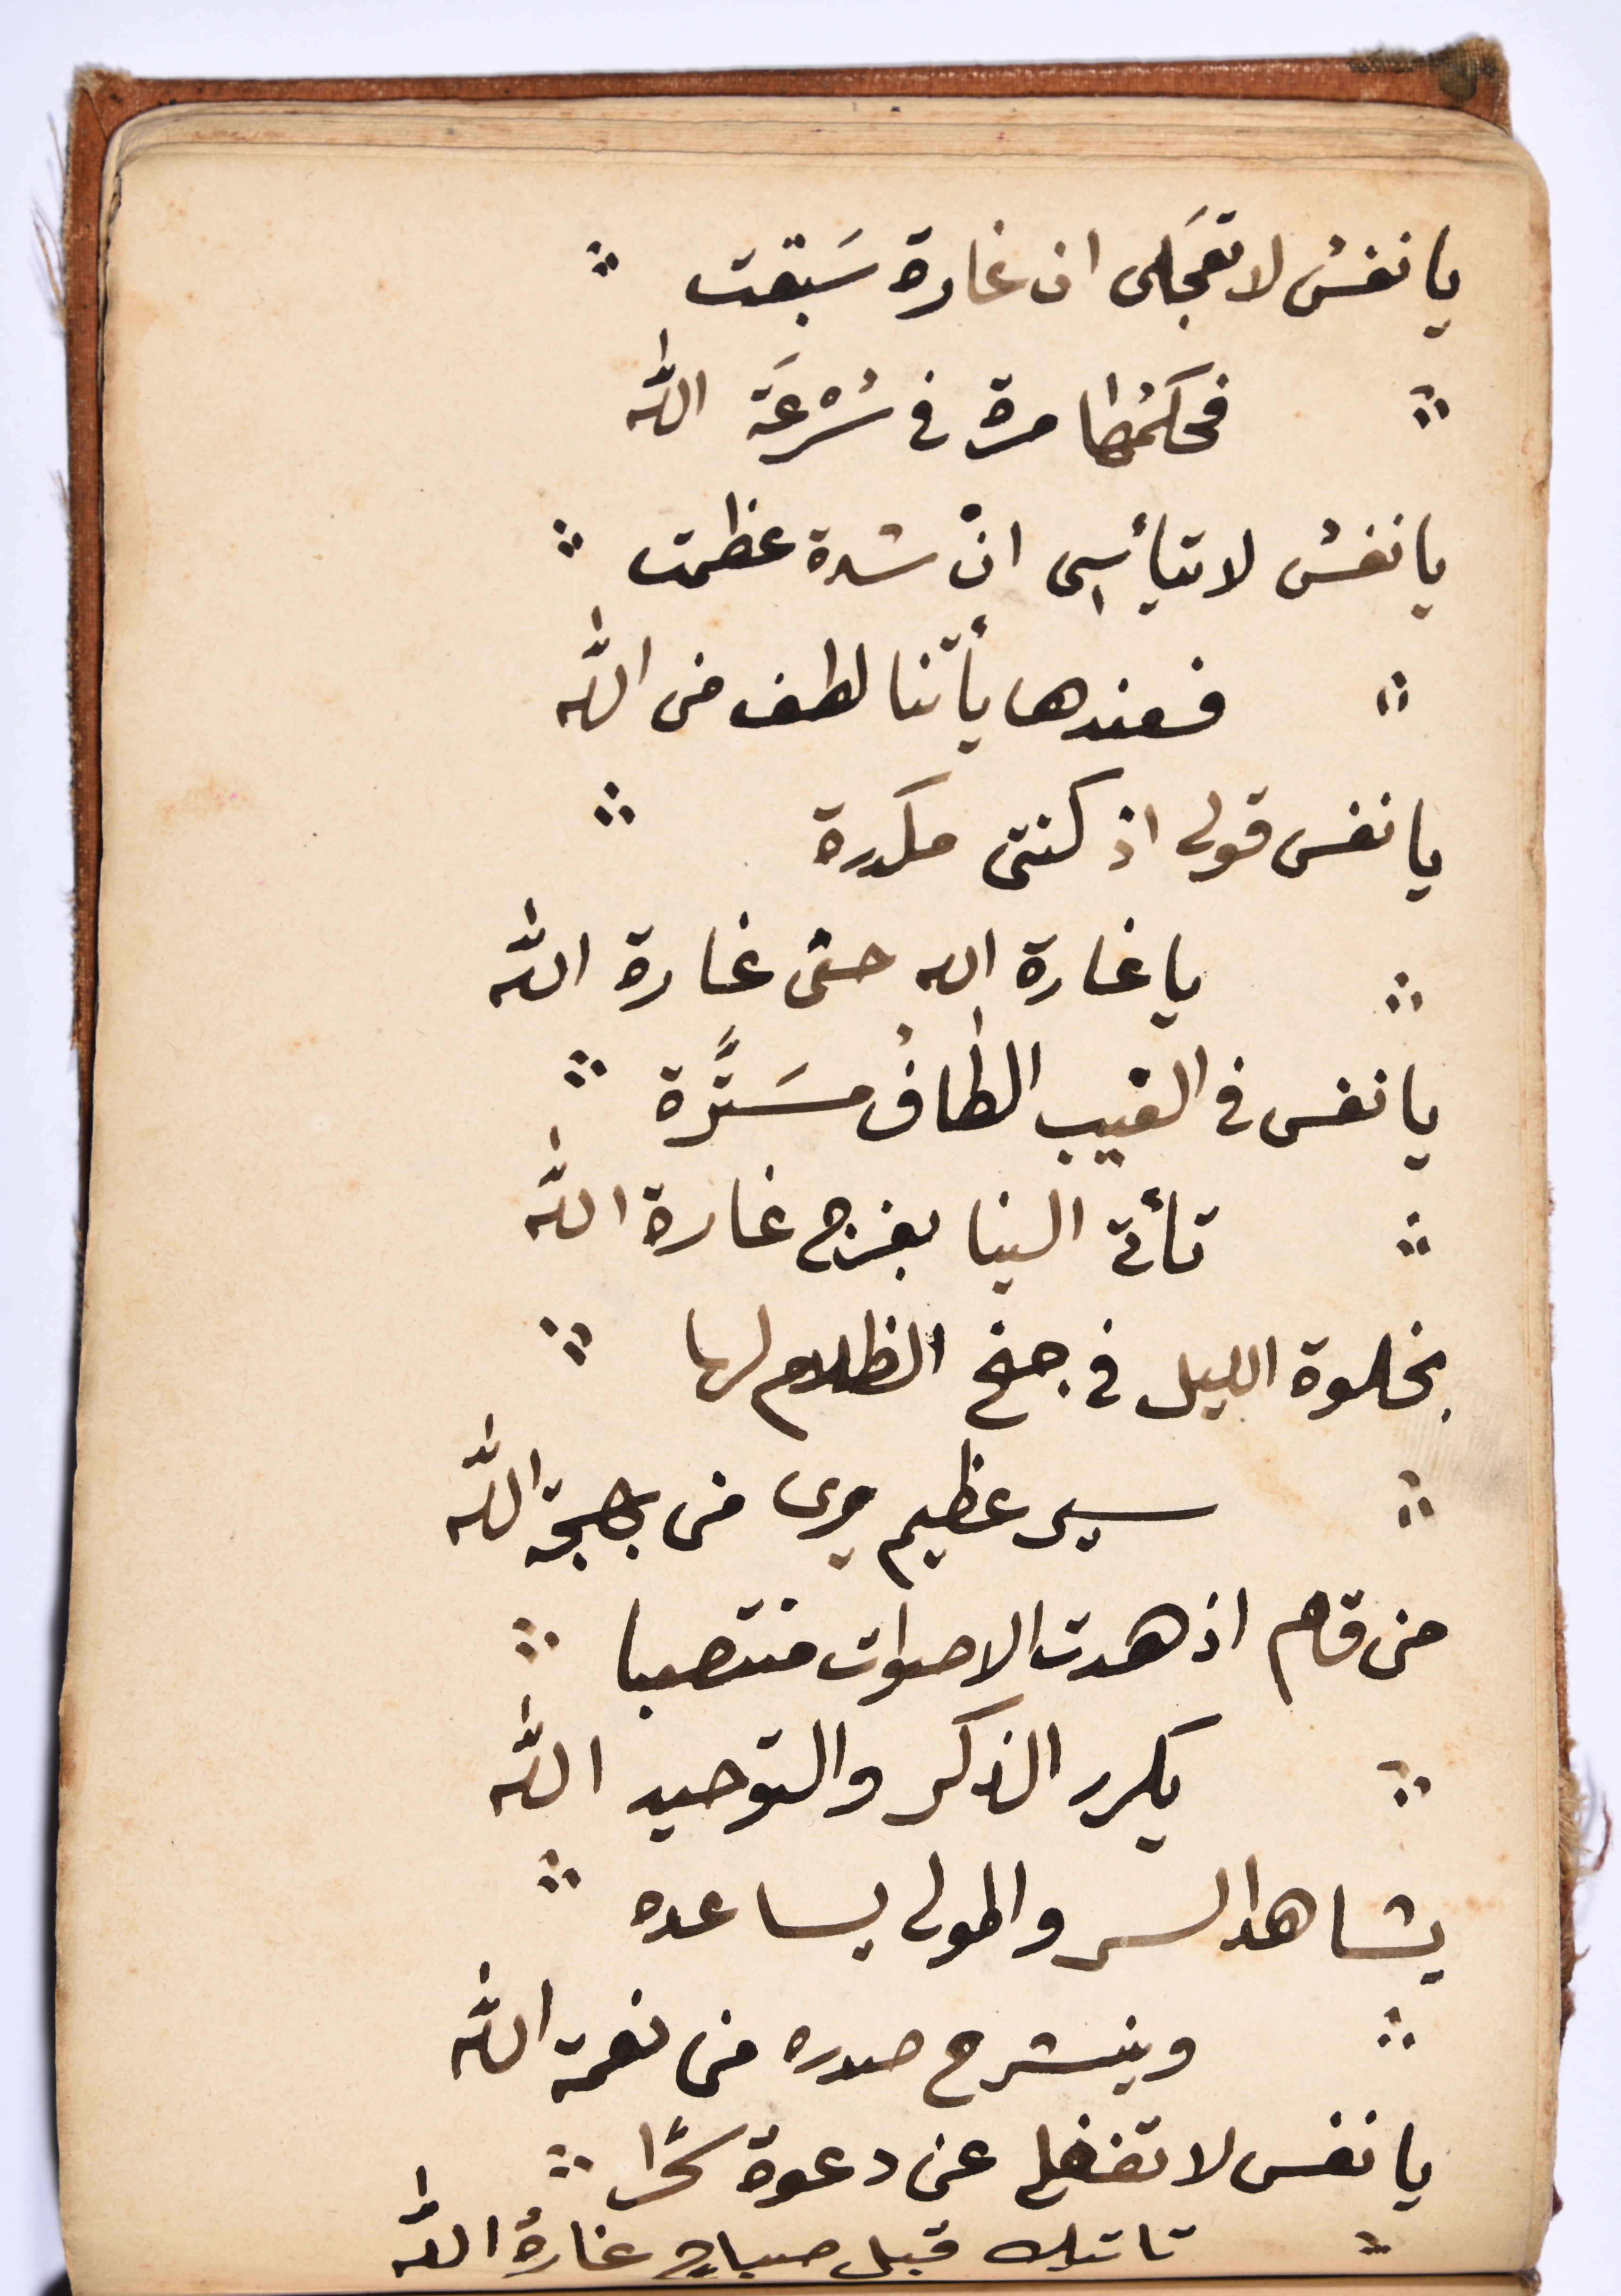 يا نفسُ لا تعجَلى ان غارة سَبقت
فحكمُها مرة فى سُرْعَة الله
يا نفسُ لا تيأسى انْ شدة عظمت
فعندها يأتنا لطف من الله
يا نفس قولى اذ كنتى مكدرة
يا غارة الله حثى غارة الله
يا نفس فى الغيب الطافُ مسَتَّرة
تأتى الينا بفرج غارة الله
بخلوة الليل فى جنح الظلام لها
سير عظيم يرى من بهجة الله
من قام اذ هدت الاصوات منتصبا
يكرر الذكر والتوحيد الله
يشاهد السر والمولى يساعده
وينشرح صدره من نعمة الله
يا نفس لا تغفلى عن دعوة سحرًا
تاتيك قبل صباحٍ غارةُ الله